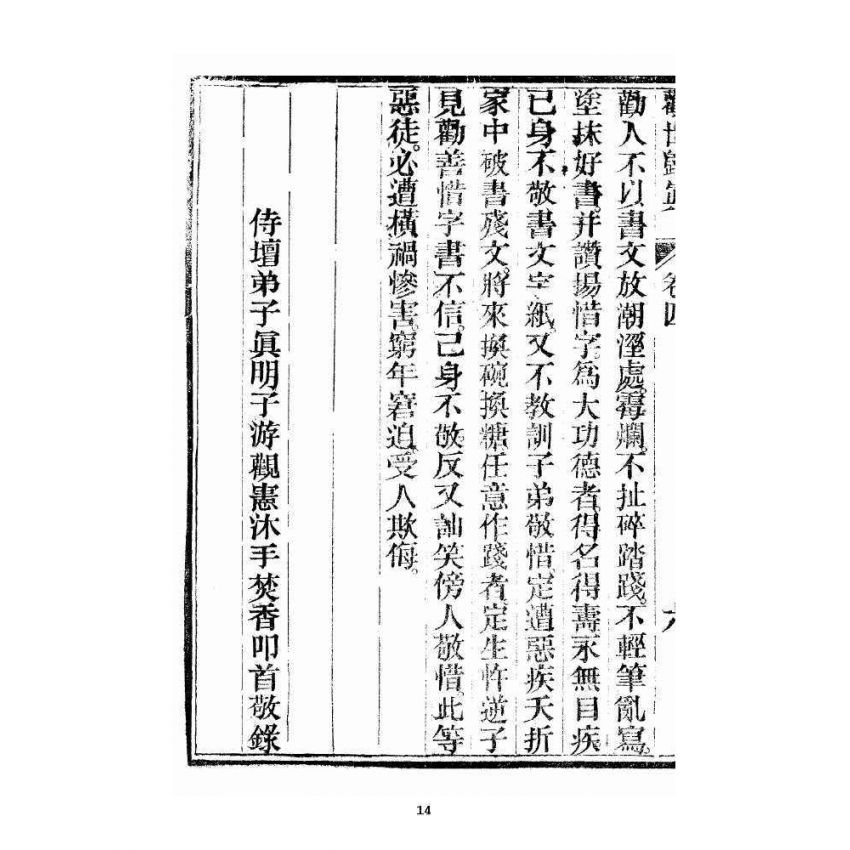 勸世歸真 卷四 六
勸人不以書文放潮溼處。霉爛。不扯碎踏踐。不輕筆亂寫。
塗抹好書。并讚揚惜字。為大功德者。得名得壽。永無目疾
己身不敬書文字紙。又不教訓子弟敬惜。定遭惡疾夭折
家中破書殘文。將來換碗換糖任意作踐者。定生忤逆子
見勸善惜字書不信。己身不敬。反又訕笑傍人敬惜。此等
惡徒。必遭橫禍慘害。窮年窘迫。受人欺侮。
侍壇弟子眞明子游觀憲沐手焚香叩首敬錄
14